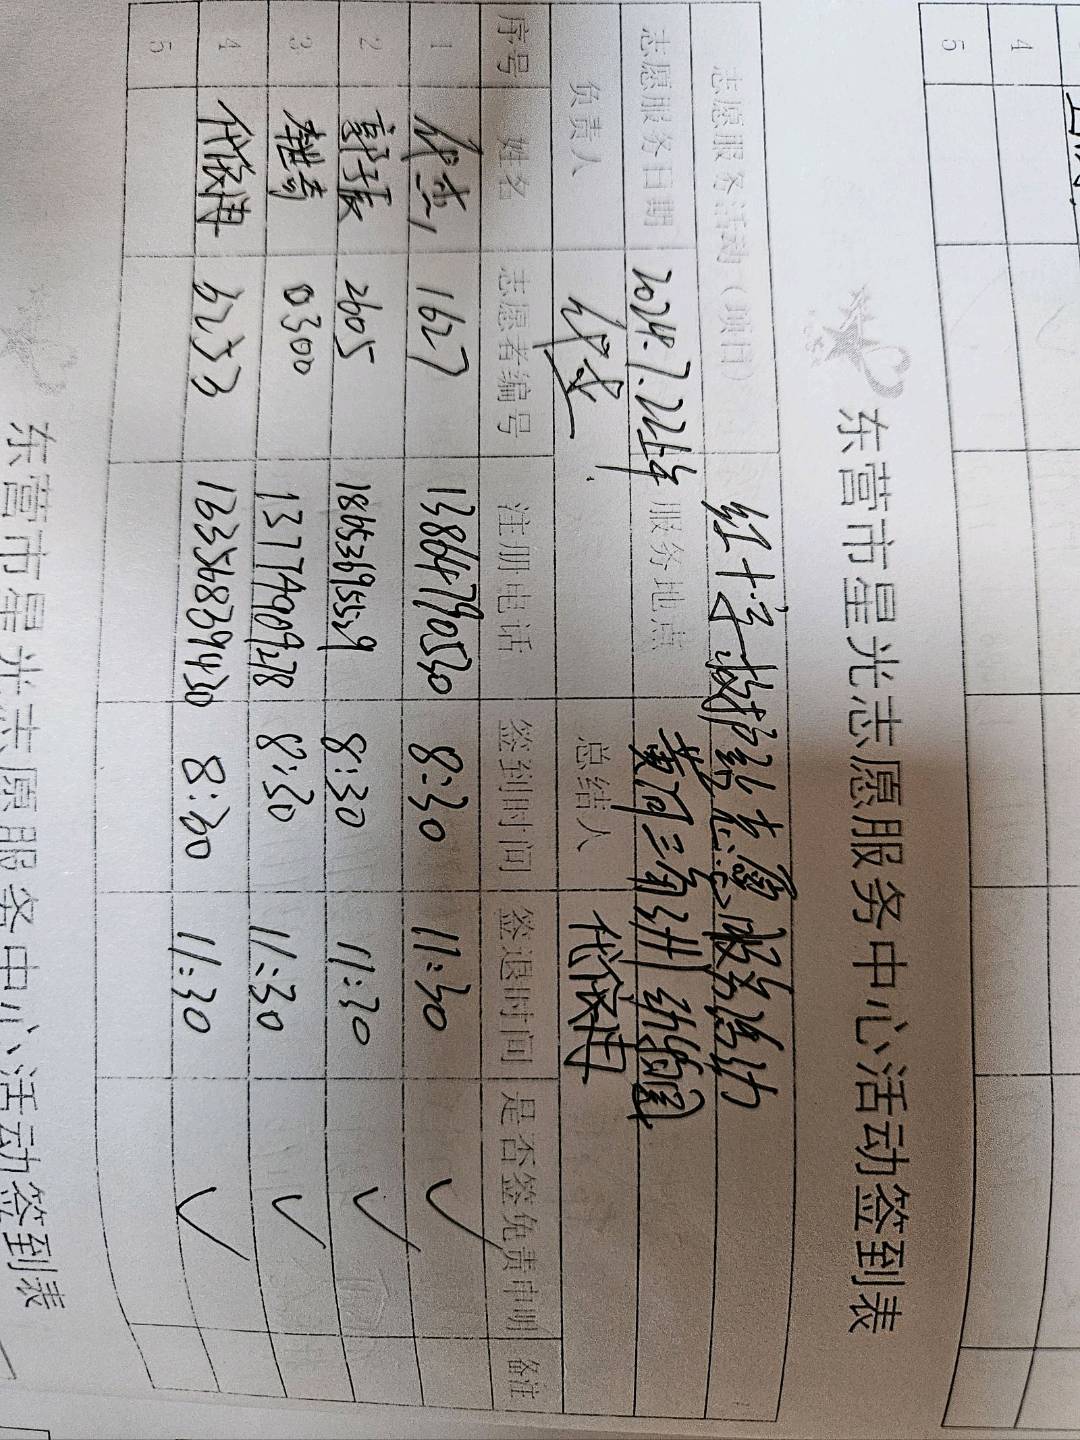 4
5
东营市星光志愿服务中心活动签到表
志愿服务活动（项目） 红十字救护站志愿服务活动
志愿服务日期 2024.7.22上午 服务地点 黄河三角洲
负责人 总结人 代俊冉
序号 姓名 志愿者编号 注册电话 签到时间 签退时间 是否签免责申明 备注
1 1627 13864790530 8:30 11:30 ✓
2 2605 18653695559 8:30 11:30 ✓
3 0300 8:30 11:30 ✓
4 代俊冉 6233 16356839430 8:30 11:30 ✓
5
东营市星光志愿服务中心活动签到表